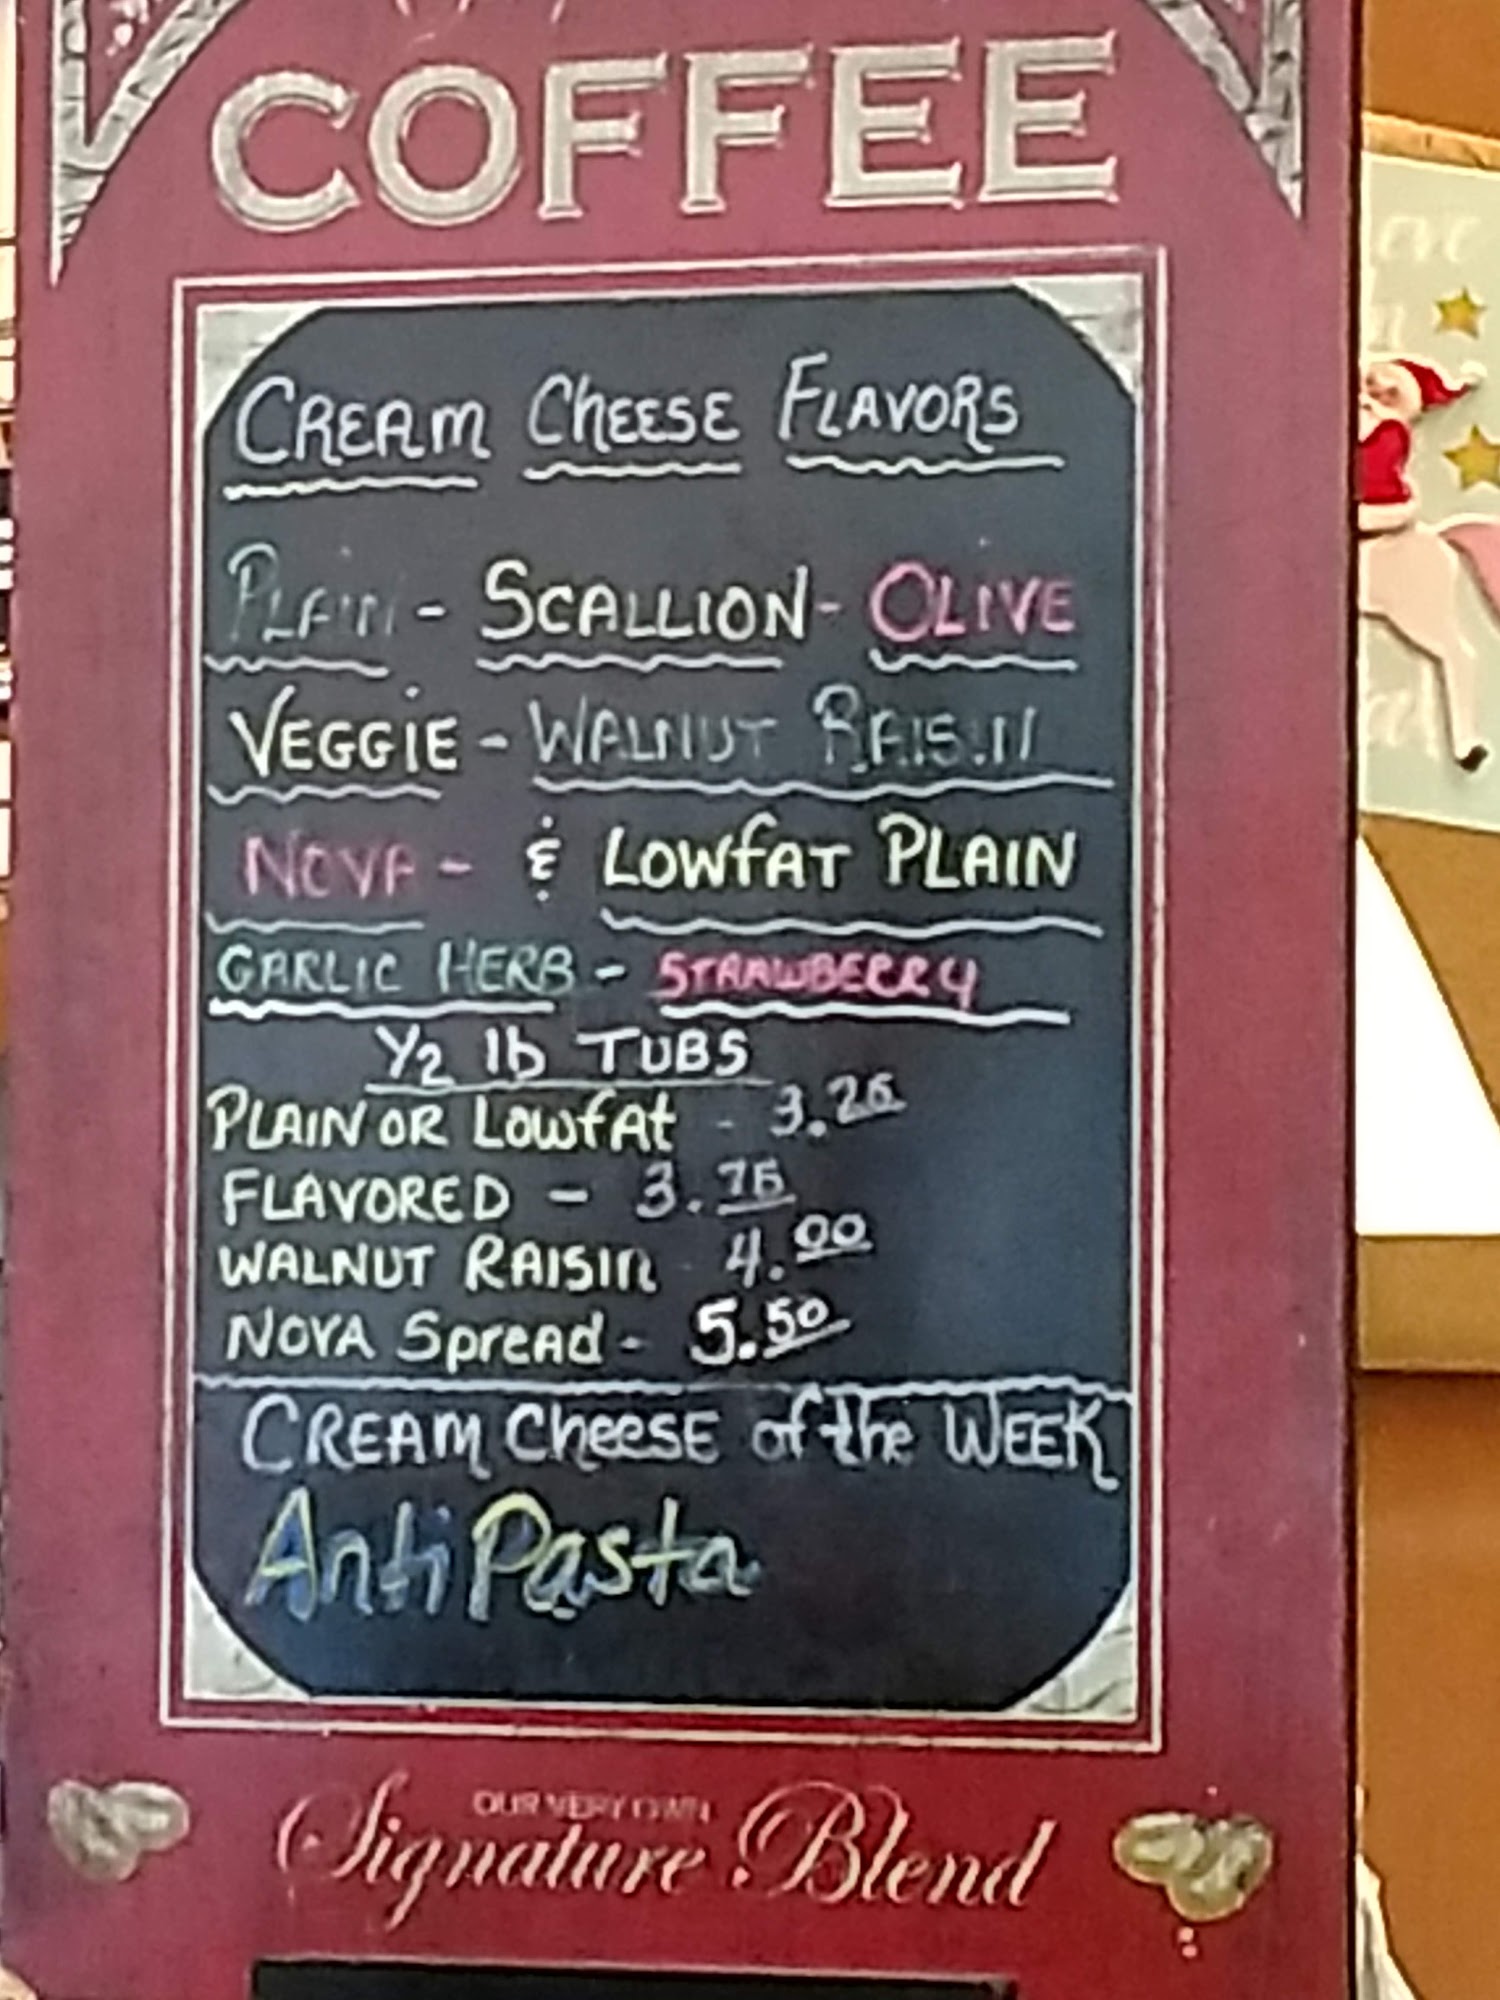 COFFEE
CREAM CHEESE FLAVORS
PLAIN - SCALLION - OLIVE
VEGGIE - WALNUT RAISIN
NOVA - & LOWFAT PLAIN
GARLIC HERB - STRAWBERRY
1/2 lb TUBS
PLAIN OR LOWFAT - 3.25
FLAVORED - 3.75
WALNUT RAISIN - 4.00
NOVA SPREAD - 5.50
CREAM CHEESE of the WEEK
AntiPasta
OUR VERY OWN
Signature Blend